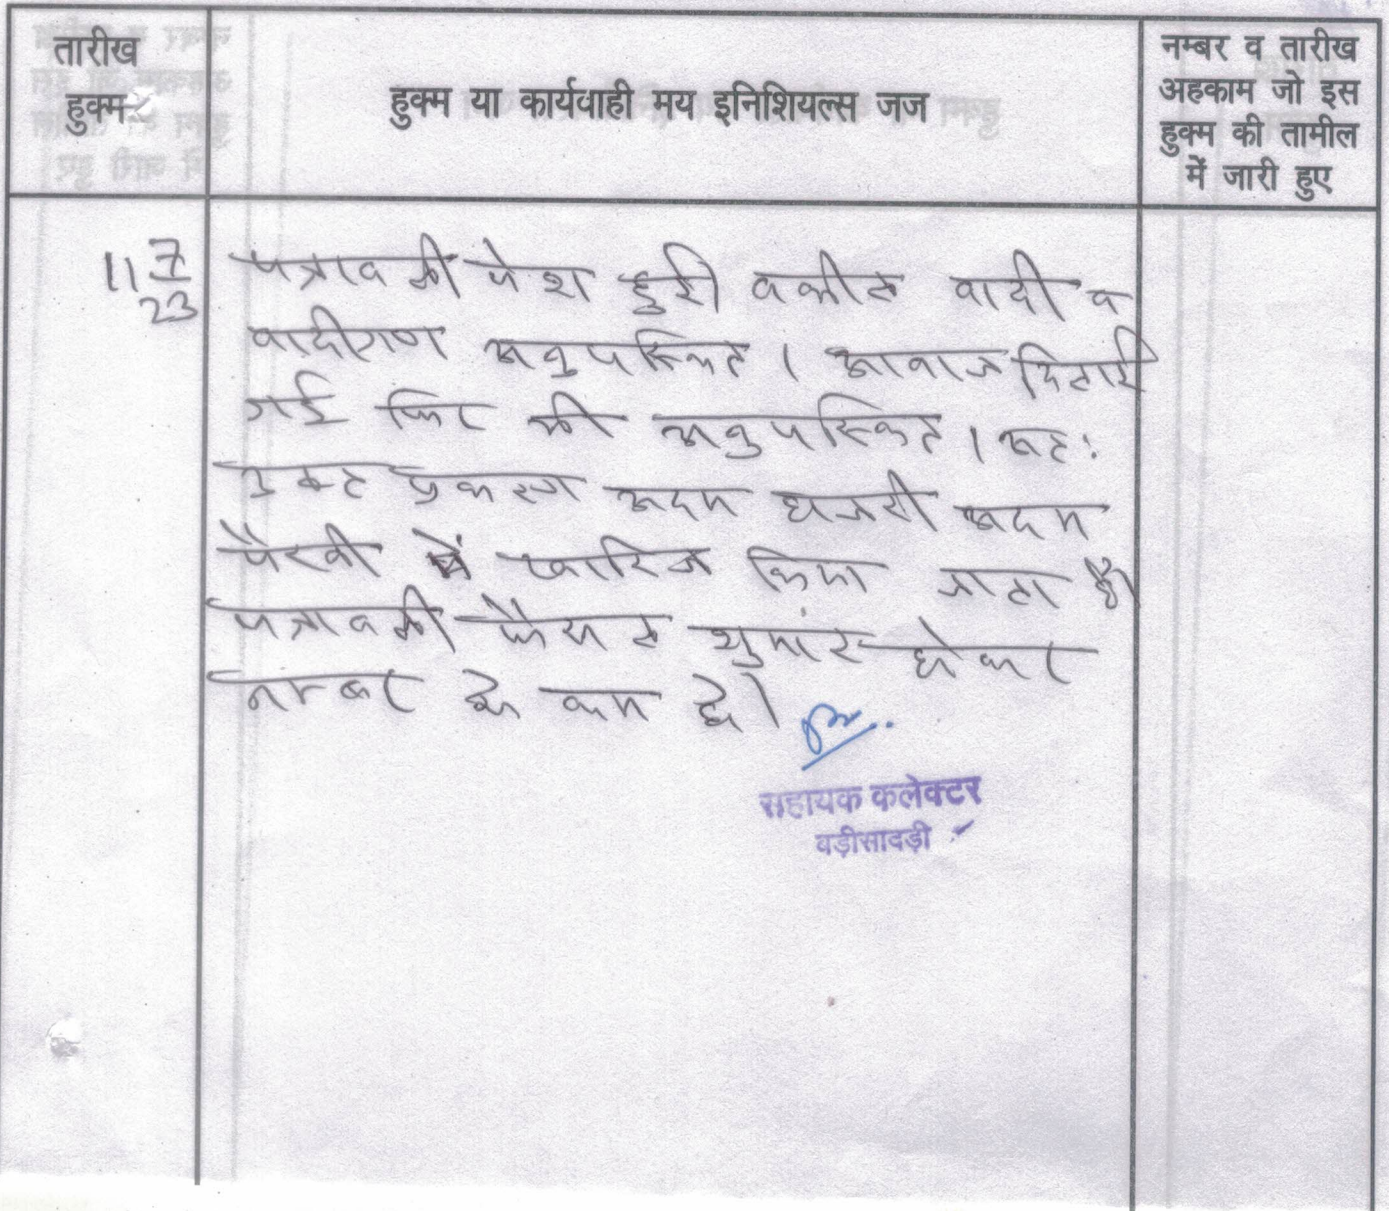 तारीख
हुक्म
हुक्म या कार्यवाही मय इनिशियल्स जज
नम्बर व तारीख
अहकाम जो इस
हुक्म की तामील
में जारी हुए
11 7/23
पत्रावली पेश हुई वकील वादी व
वादीगण अनुपस्थित । आवाज दिलाई
गई फिर भी अनुपस्थित । अतः
उक्त प्रकरण अदम हाजरी अदम
पैरवी में खारिज किया जाता है।
पत्रावली फैसल शुमार होकर
नम्बर से कम हो।
सहायक कलेक्टर
बड़ीसादड़ी